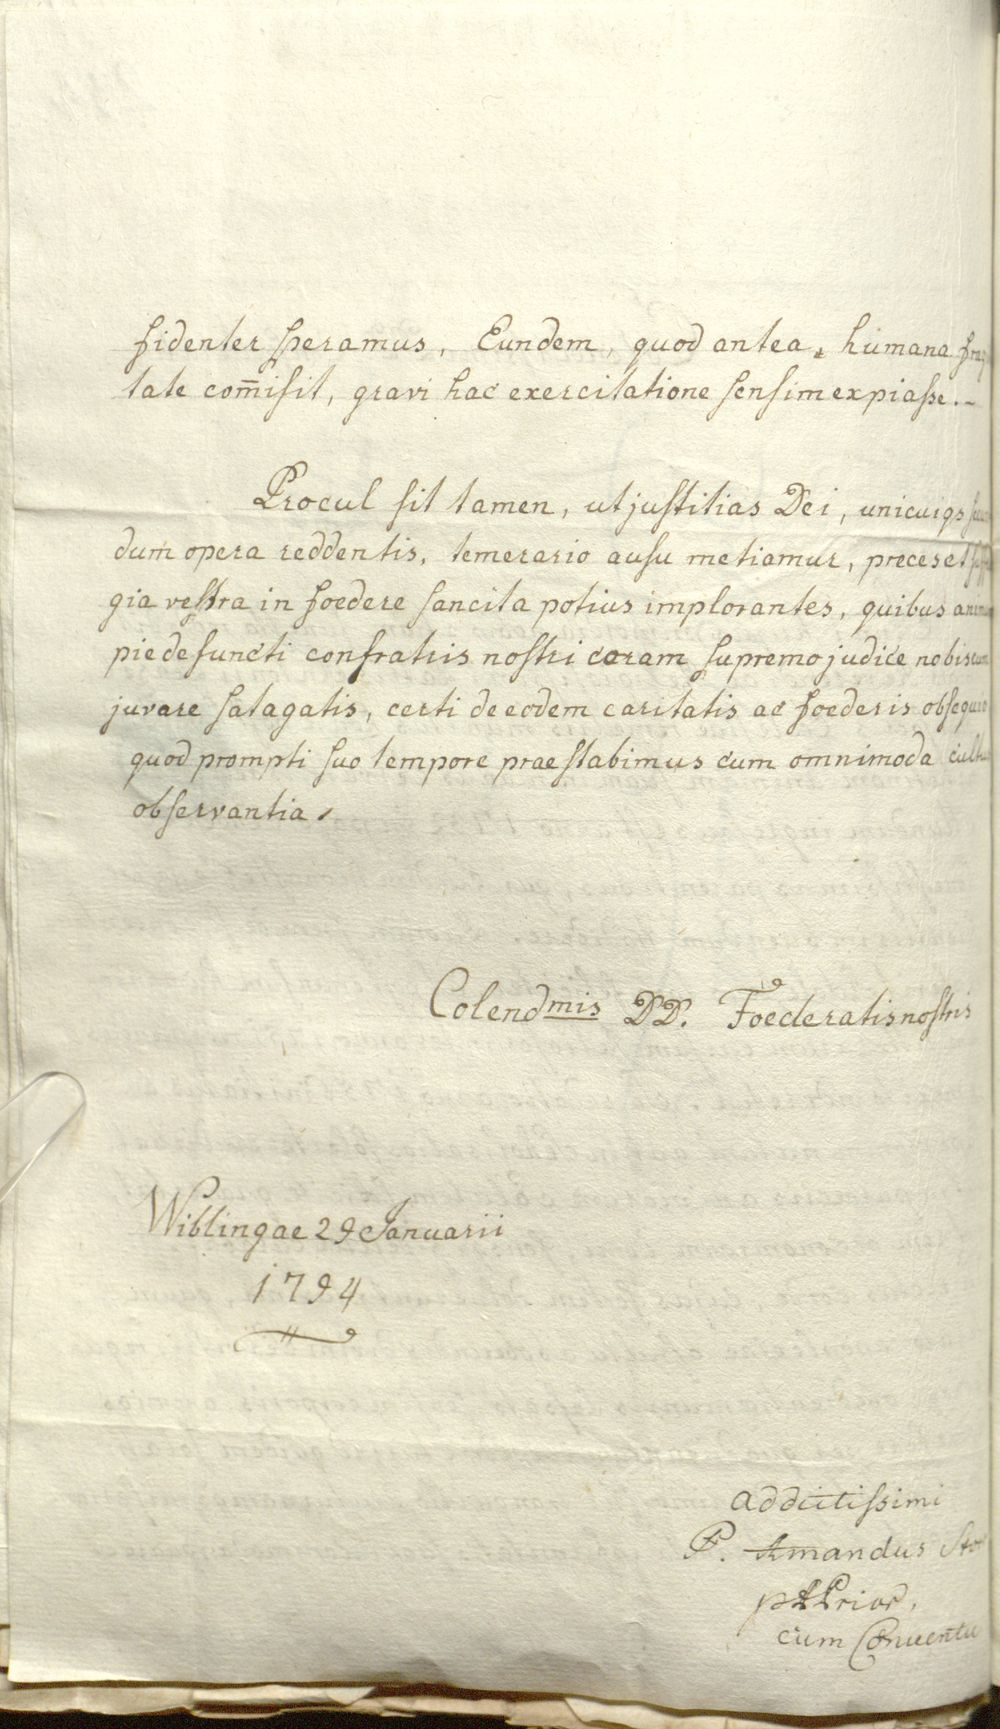 fidenter speramus, Eundem, quod antea, humana frag
tate com̄isit, gravi hac exercitatione sensim expiasse.-
Procul sit tamen, ut justitias Dei, unicuiqs secun
dum opera reddentis, temerario ausu metiamur, preces et suffra
gia vestra in foedere sancita potius implorantes, quibus animam
pie defuncti confratris nostri coram supremo judice nobiscum
juvare satagatis, certi de eodem caritatis ac foederis obsequio
quod prompti suo tempore praestabimus cum omnimoda cultus
observantia.
Colendmis DD. Foederatis nostris
Wiblingae 29 Januarii
1794
addictissimi
P. Amandus
p.t. Prior,
cum Conventu